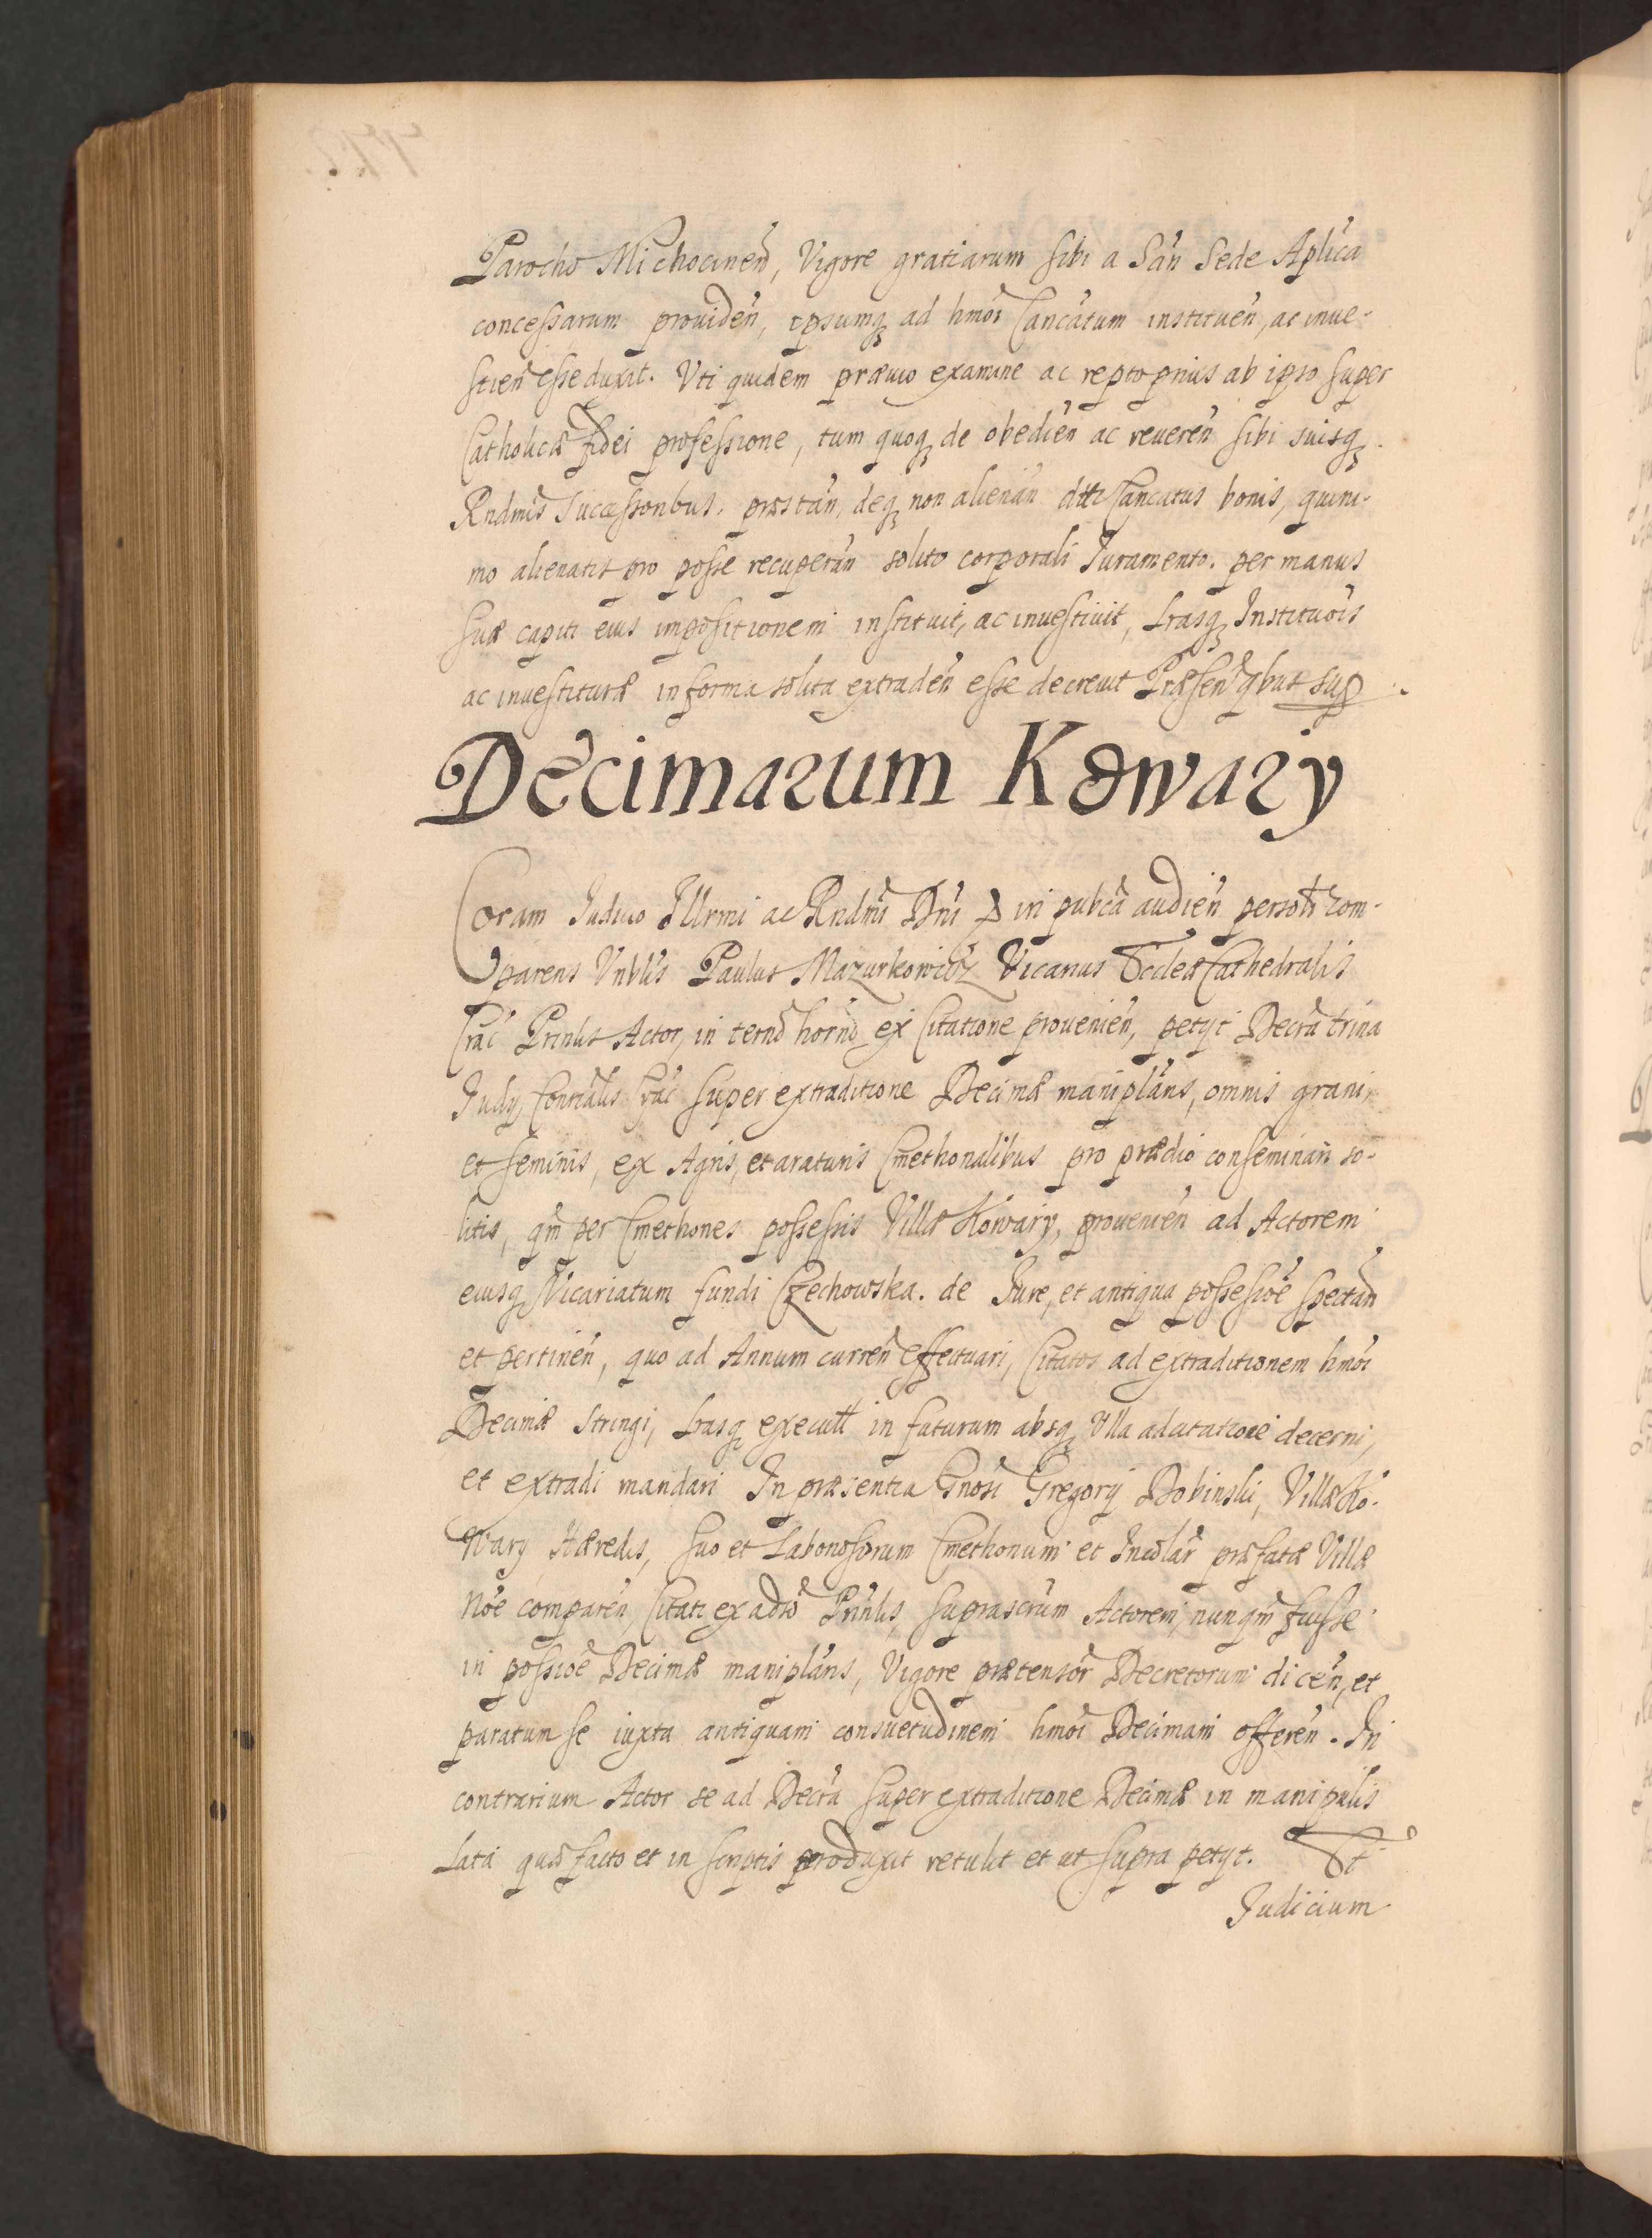 Parocho Michocinen, Vigore gratiarum sibi a San Sede Aplica
concessarum providen, ipsumq ad hmoi Cancatum instituen, ac inve-
stien esse duxit. Vti quidem prævio examine ac repto prius ab ipso super
Catholicæ fidei professione, tum quoq de obedien ac reveren sibi suisq
Rndmis Successoribus, præstan, deq non alienan dicti Cancatus bonis, quini-
mo alienatis pro posse recuperan solito corporali Juramento, per manus
suæ capiti eius impositionem instituit, ac investivit, Lrasq Institutois
ac investituræ in forma solita extraden esse decrevit Præsen qbus sup
Decimarum Kowary
Coram Judicio Illrmi ac Rndmi Dni in pubca audien personr com-
parens Vnblis Paulus Mazurkowicz Vicarius Ecclæ Cathedralis
Crac Prinlis Actor, in terno horno ex Citatione provenien, petyt Decra trina
Judy Conrialis Crac super extraditione Decimæ maniplaris, omnis grani,
et seminis, ex Agris, et araturis Cmethonalibus pro prædio conseminari so-
litis, qm per Cmethones possessis Villæ Kowary, provenien ad Actorem
eiusq Vicariatum fundi Czechowska. de Jure, et antiqua possessioe spectan
et pertinen, quo ad Annum curren effectuari, Citatos ad extraditionem hmoi
Decimæ stringi, Lrasq executi in futurum absq Vlla adcitatione decerni,
et extradi mandari In præsentia Gnosi Gregorij Dobinski, Villæ Ko-
wary Hæredis, suo et Laboriosorum Cmethonum et Incolar præfatæ Villæ
Noe comparen, Citati ex adto Prinlis, suprascrum Actorem, nunqm fuisse
in possioe Decimæ maniplaris, Vigore prætensor Decretorum dicen, et
paratum se iuxta antiquam consuetudinem hmoi Decimam offeren. In
contrarium Actor se ad Decra super extraditione Decimæ in manipulis
Lata quæ facto et in scriptis produxit retulit et ut supra petyt. Et
Judicium